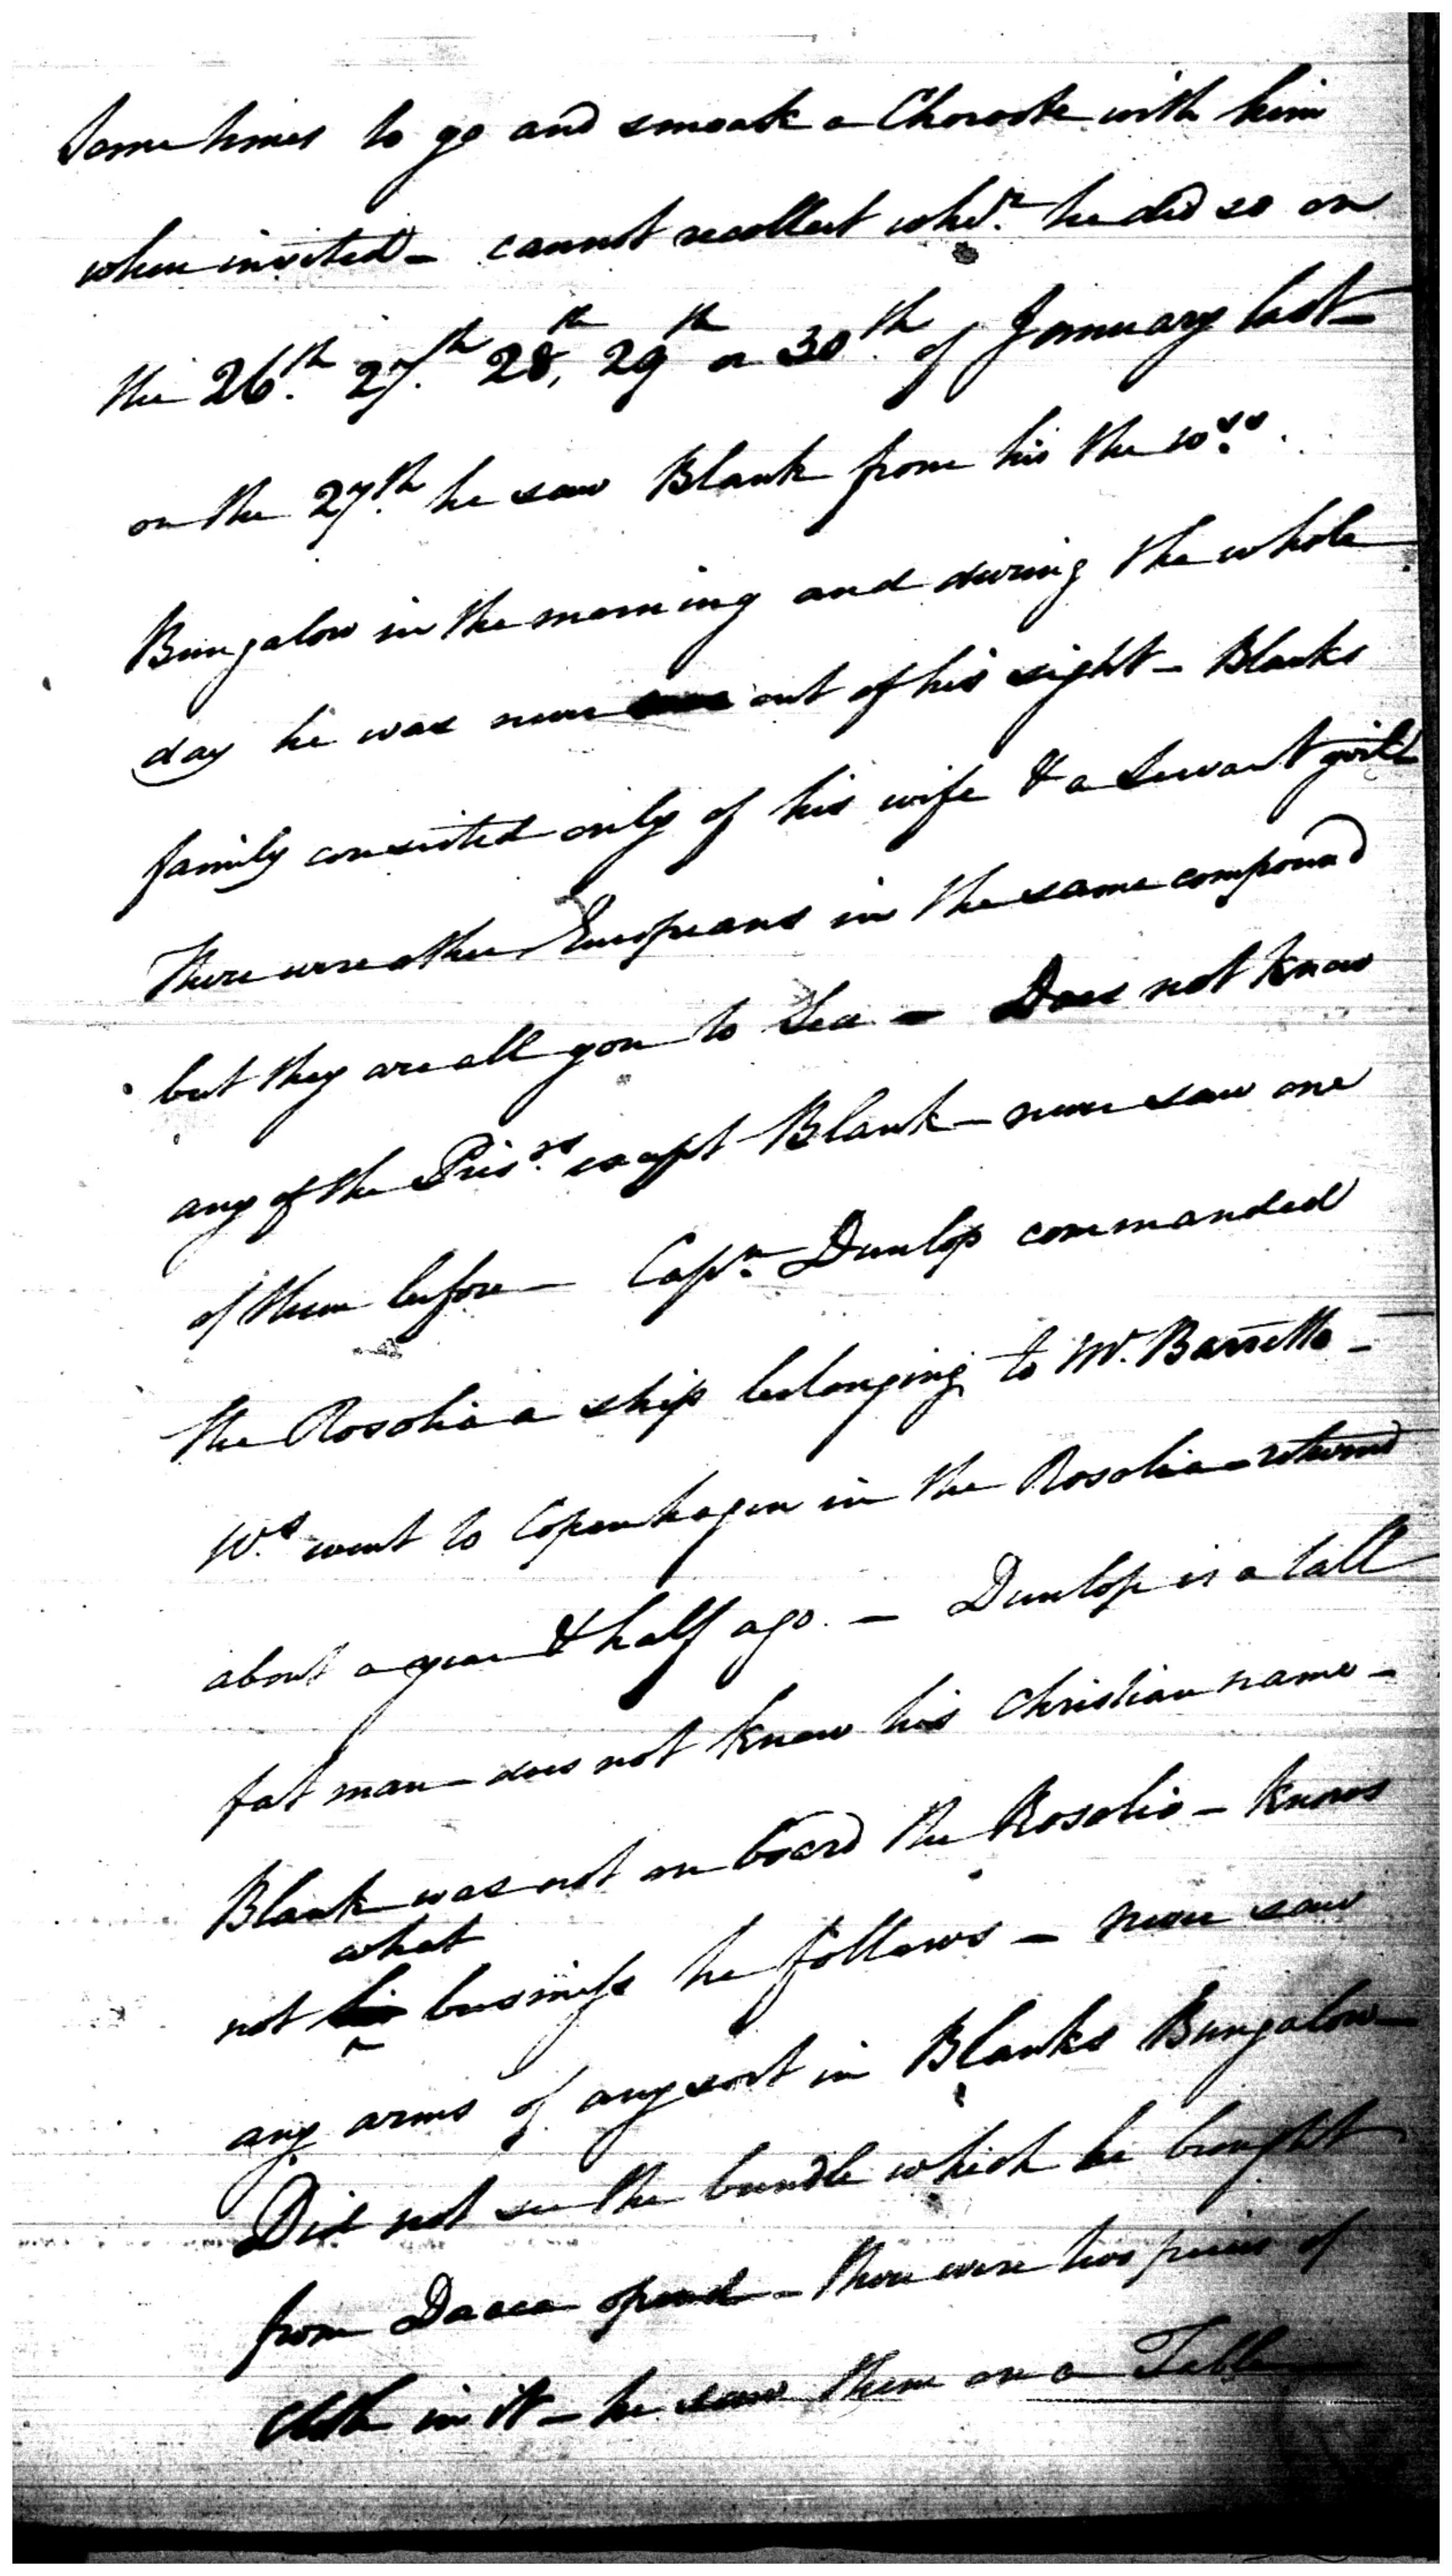 Sometimes to go and smoak a Cheroote with him
when invited - cannot recollect wher. he did so on
the 26.th 27.th 28,th 29th or 30.th of January last -
on the 27.th he saw Blank from his the Wss.
Bungalow in the morning and during the whole
day he was never out of his sight - Blanks
family consisted only of his wife & a Servant girl
There were other Europeans in the same compound
but they are all gon to Sea - Does not know
any of the Prisrs. except Blank - never saw one
of them before - Captn. Dunlop commanded
the Rosolia a ship belonging to Mr. Barretto -
Ws. went to Copenhagen in the Rosolia - returned
about a year & half ago. - Dunlop is a tall
fat man - does not know his Christian name -
Blank was not on board the Rosolia - knows
not what business he follows - never saw
any arms of any sort in Blanks Bungalow -
Did not see the bundle which he brought
from Dacca opend - there were two pieces of
Cloth in it - he saw them on a Table -